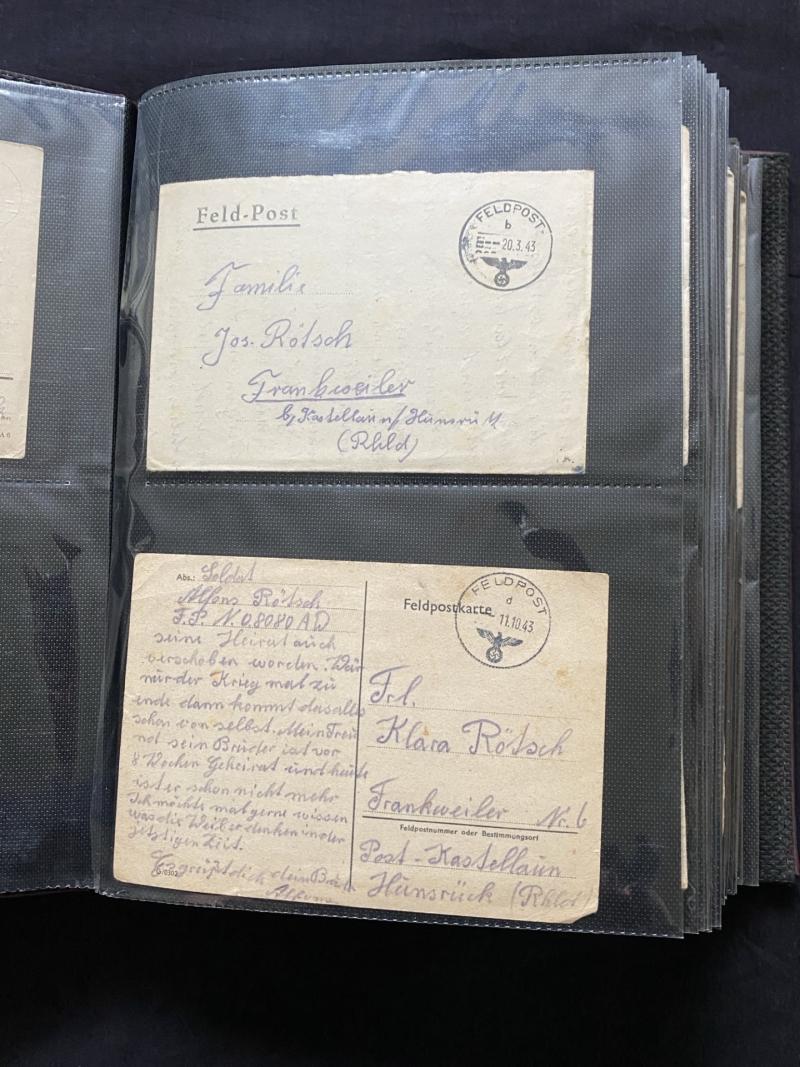 Feld-Post
FELDPOST
b
20.3.43
Familie
Jos. Rötsch
Frankweiler
b/Kastellaun/Hunsrück
(Rhld)
Abs.: Soldat
Alfons Rötsch
F.P. N. 08080 AD
seine Heirat auch
verschoben worden. Wär
nur der Krieg mal zu
ende dann kommt das alles
schon von selbst. Mein Freu
nd sein Bruder ist vor
8 Wochen Geheirat und heute
ist er schon nicht mehr
Ich möchte mal gerne wissen
was die Weiber denken in der
jetzigen Zeit.
Es grüßt dich dein Bruder
Alfons
Feldpostkarte
FELDPOST
d
11.10.43
Frl.
Klara Rötsch
Frankweiler Nr. 6
Feldpostnummer oder Bestimmungsort
Post-Kastellaun
Hunsrück (Rhld)